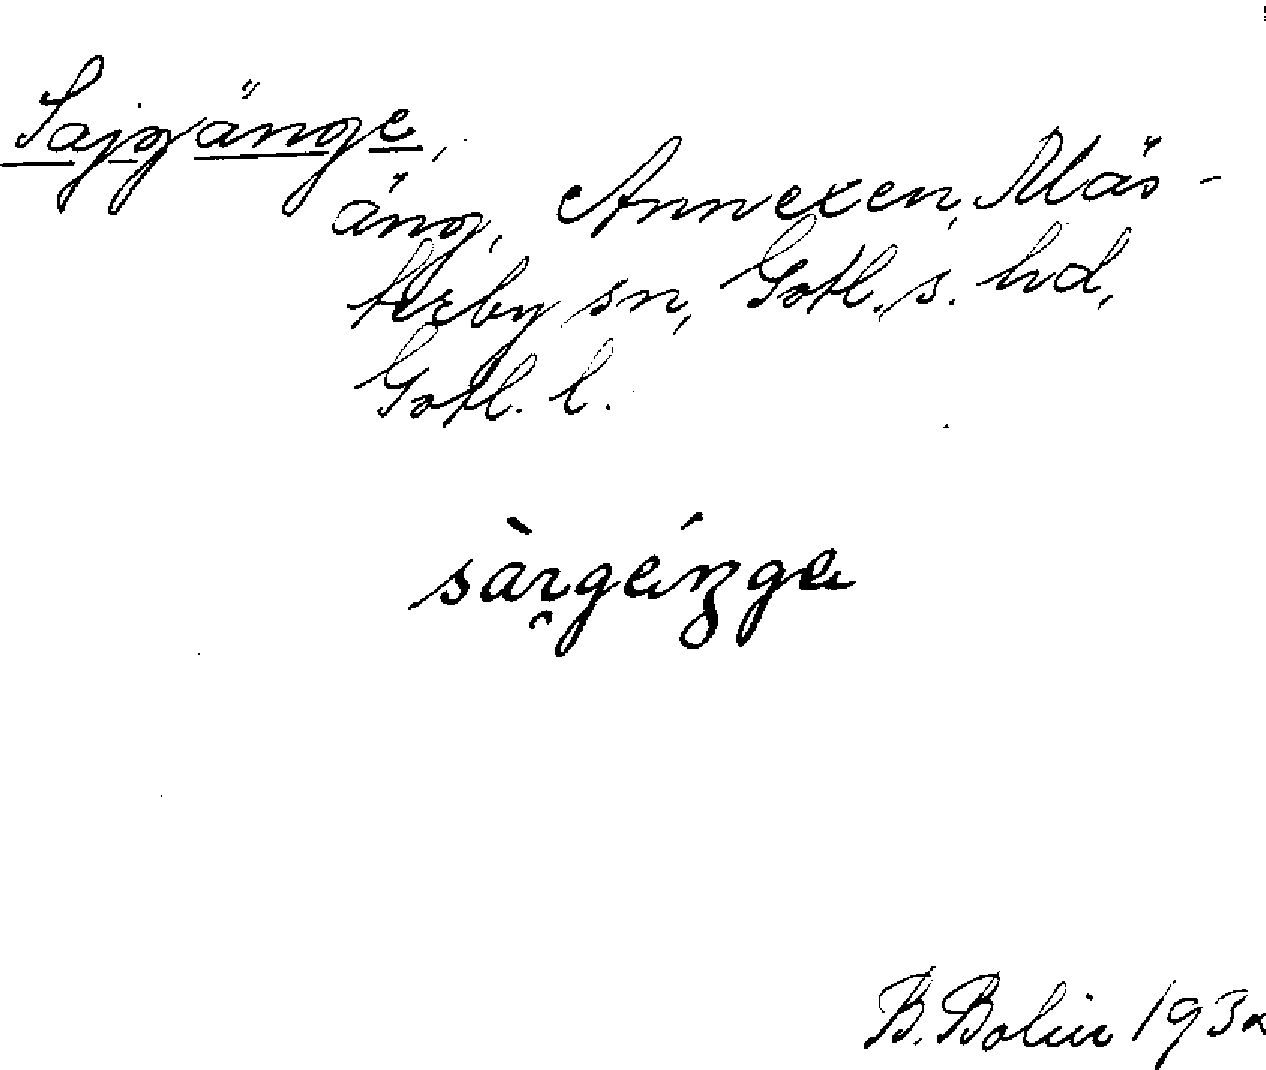 Sajgänge,
äng, Annexen, Mäs-
terby sn, Gotl. s. hd,
Gotl. l.
B. Bolin 193